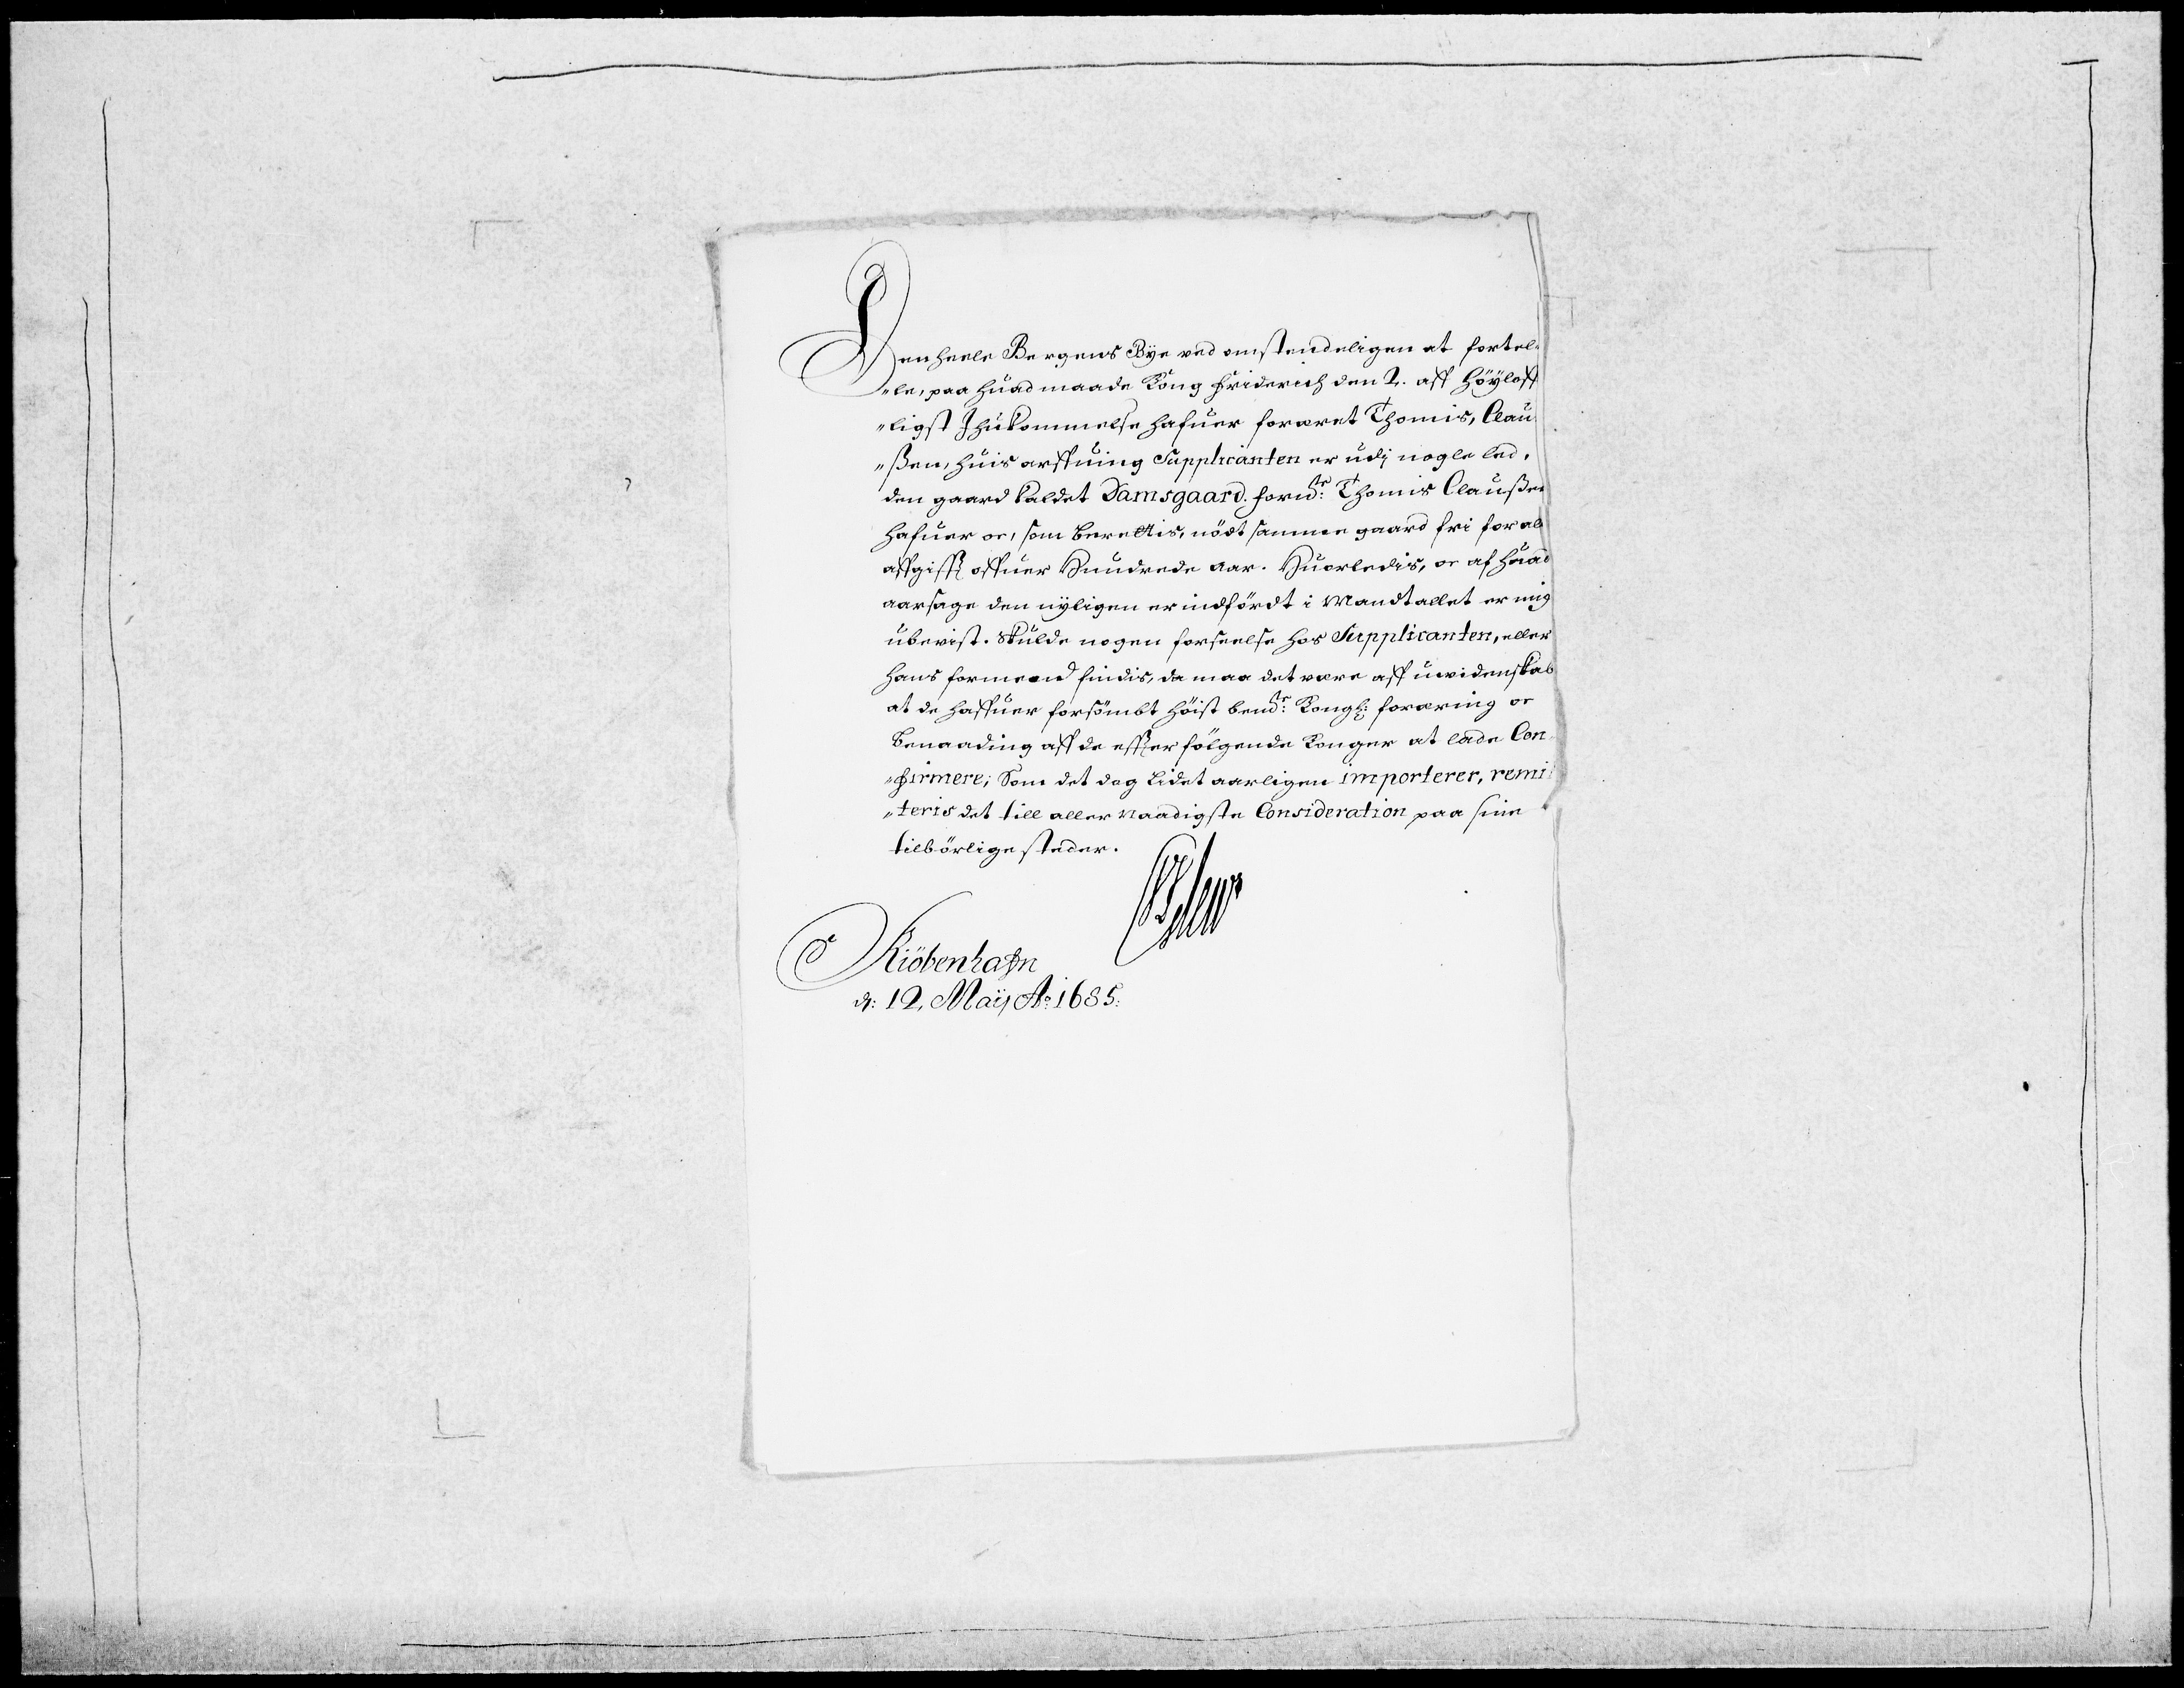 Den heele Bergens Bÿe ved omstendeligen at fortel-
"le, paa huad maade Kong Friderich den 2. aff Höÿloff
"ligst Ihukommelse hafuer foræret Thomis, Clau
"ßen, huis arffuing Supplicanten er udj nogle led,
den gaard kaldet Damsgaard. fornde: Thomis Claußen
hafuer oc, som berettis, nödt samme gaard fri for all
affgifft offuer Hundrede aar. Huorledis, oc af huad
aarsage den nÿligen er indfördt i Mandtallet er mig
ubevist. Skulde nogen forseelse hos Supplicanten, eller
hans formend findis, da maa det være aff uvidenskab
at de haffuer forsömbt höist bende: Kongl: foræring oc
benaading aff de effter fölgende konger at lade Con-
"firmere; Som det dog lidet aarligen importerer, remit
"teris det till aller Naadigste Consideration paa sine
tilbörlige steder.
Kiöbenhafn
d: 12, Maÿ Ao: 1685: